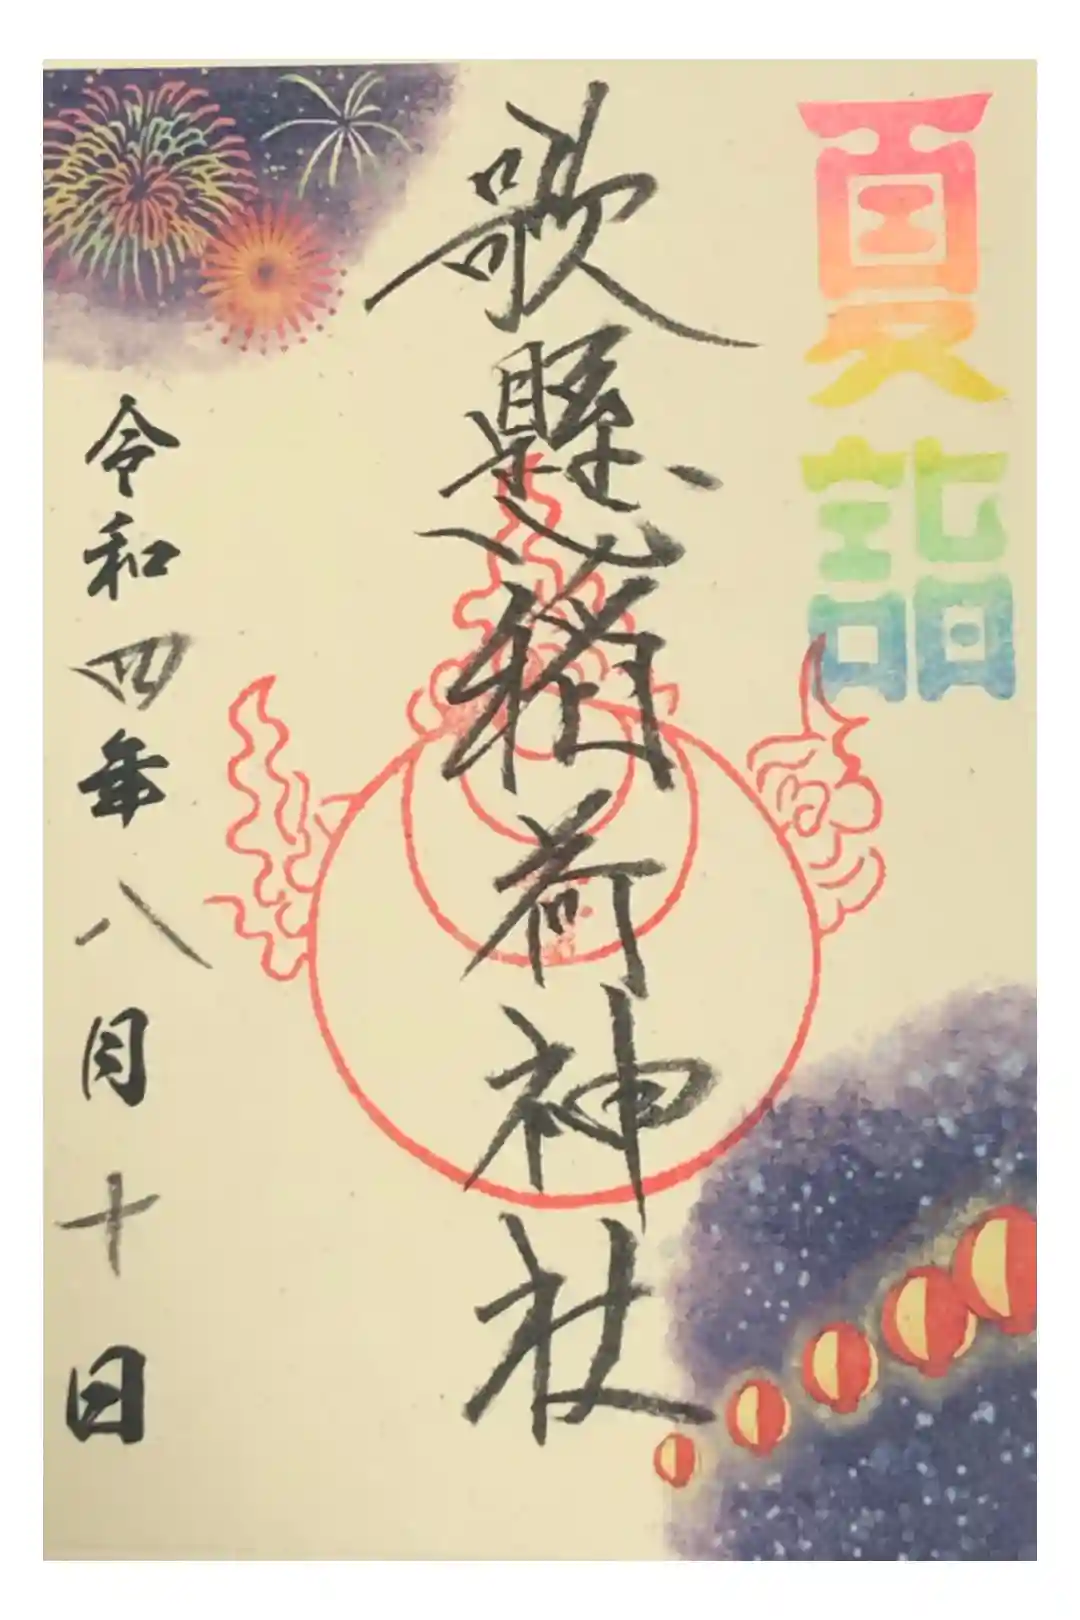 夏詣
歌懸稲荷神社
令和四年八月十日